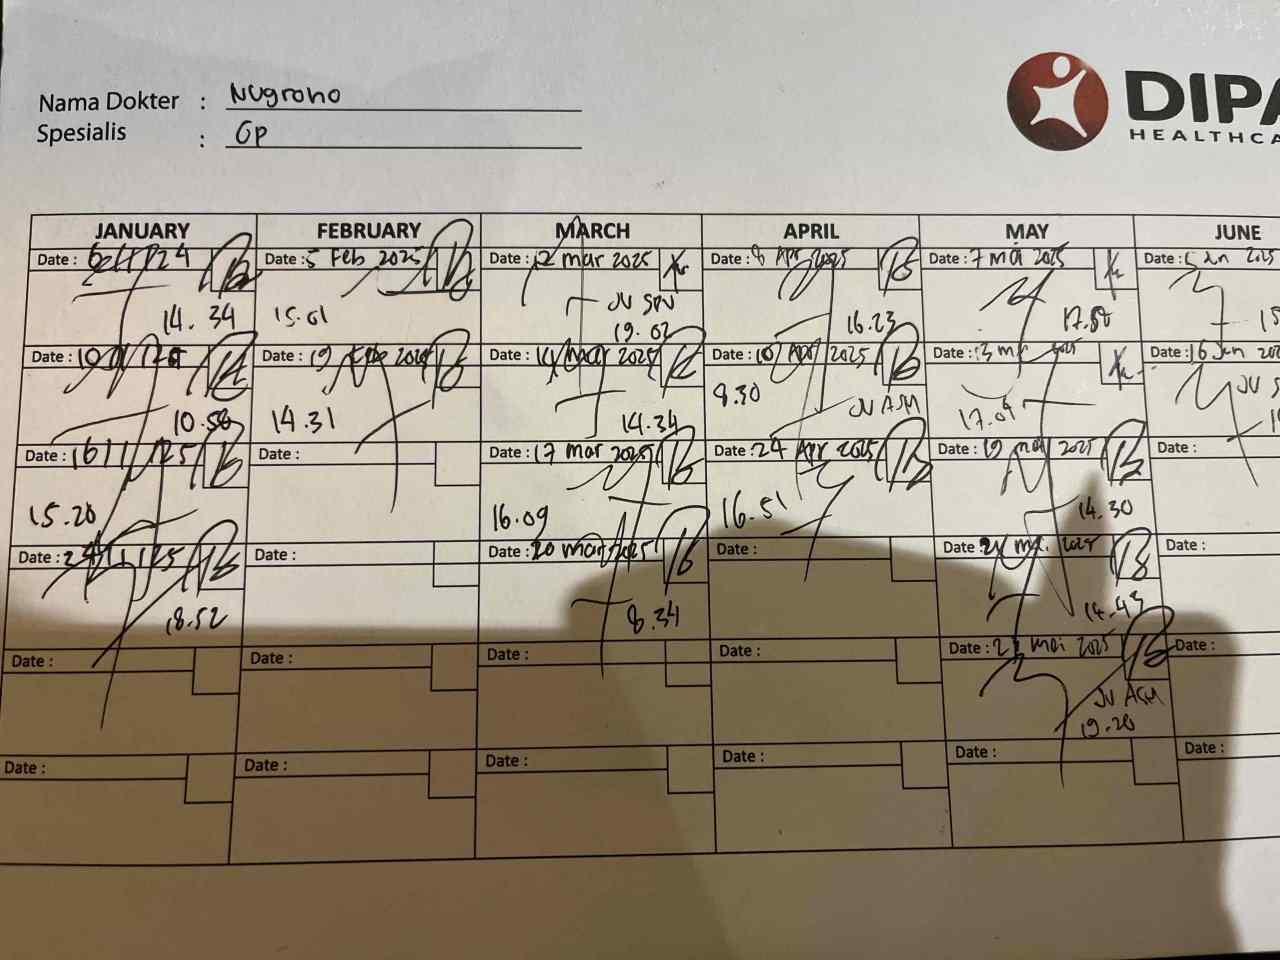 Nama Dokter : Nugroho
Spesialis : Gp
DIPA
HEALTHCA
JANUARY FEBRUARY MARCH APRIL MAY JUNE
Date : Date : 5 Feb 2025 Date : 12 mar 2025 Date : 8 Apr 2025 Date : 7 mei 2025 Date : 2025
14.34 15.01 JV SPV 16.23
19.02
Date : Date : 19 Date : 2025 Date : 10 Apr 2025 Date : 13 2025 Date : 16 Jun
10.58 14.31 14.34 8.30 JV ASM 17.09 JV
Date : 16/1/25 Date : Date : 17 mar 2025 Date : 24 Apr 2025 Date : 19 mei 2025 Date :
15.20 16.09 16.51 14.30
Date : Date : Date : 20 mar 2025 Date : Date : 2025 Date :
18.52 8.34 14.43
Date : Date : Date : Date : Date : mei 2025 Date :
JV ASM
19.28
Date : Date : Date : Date : Date : Date :